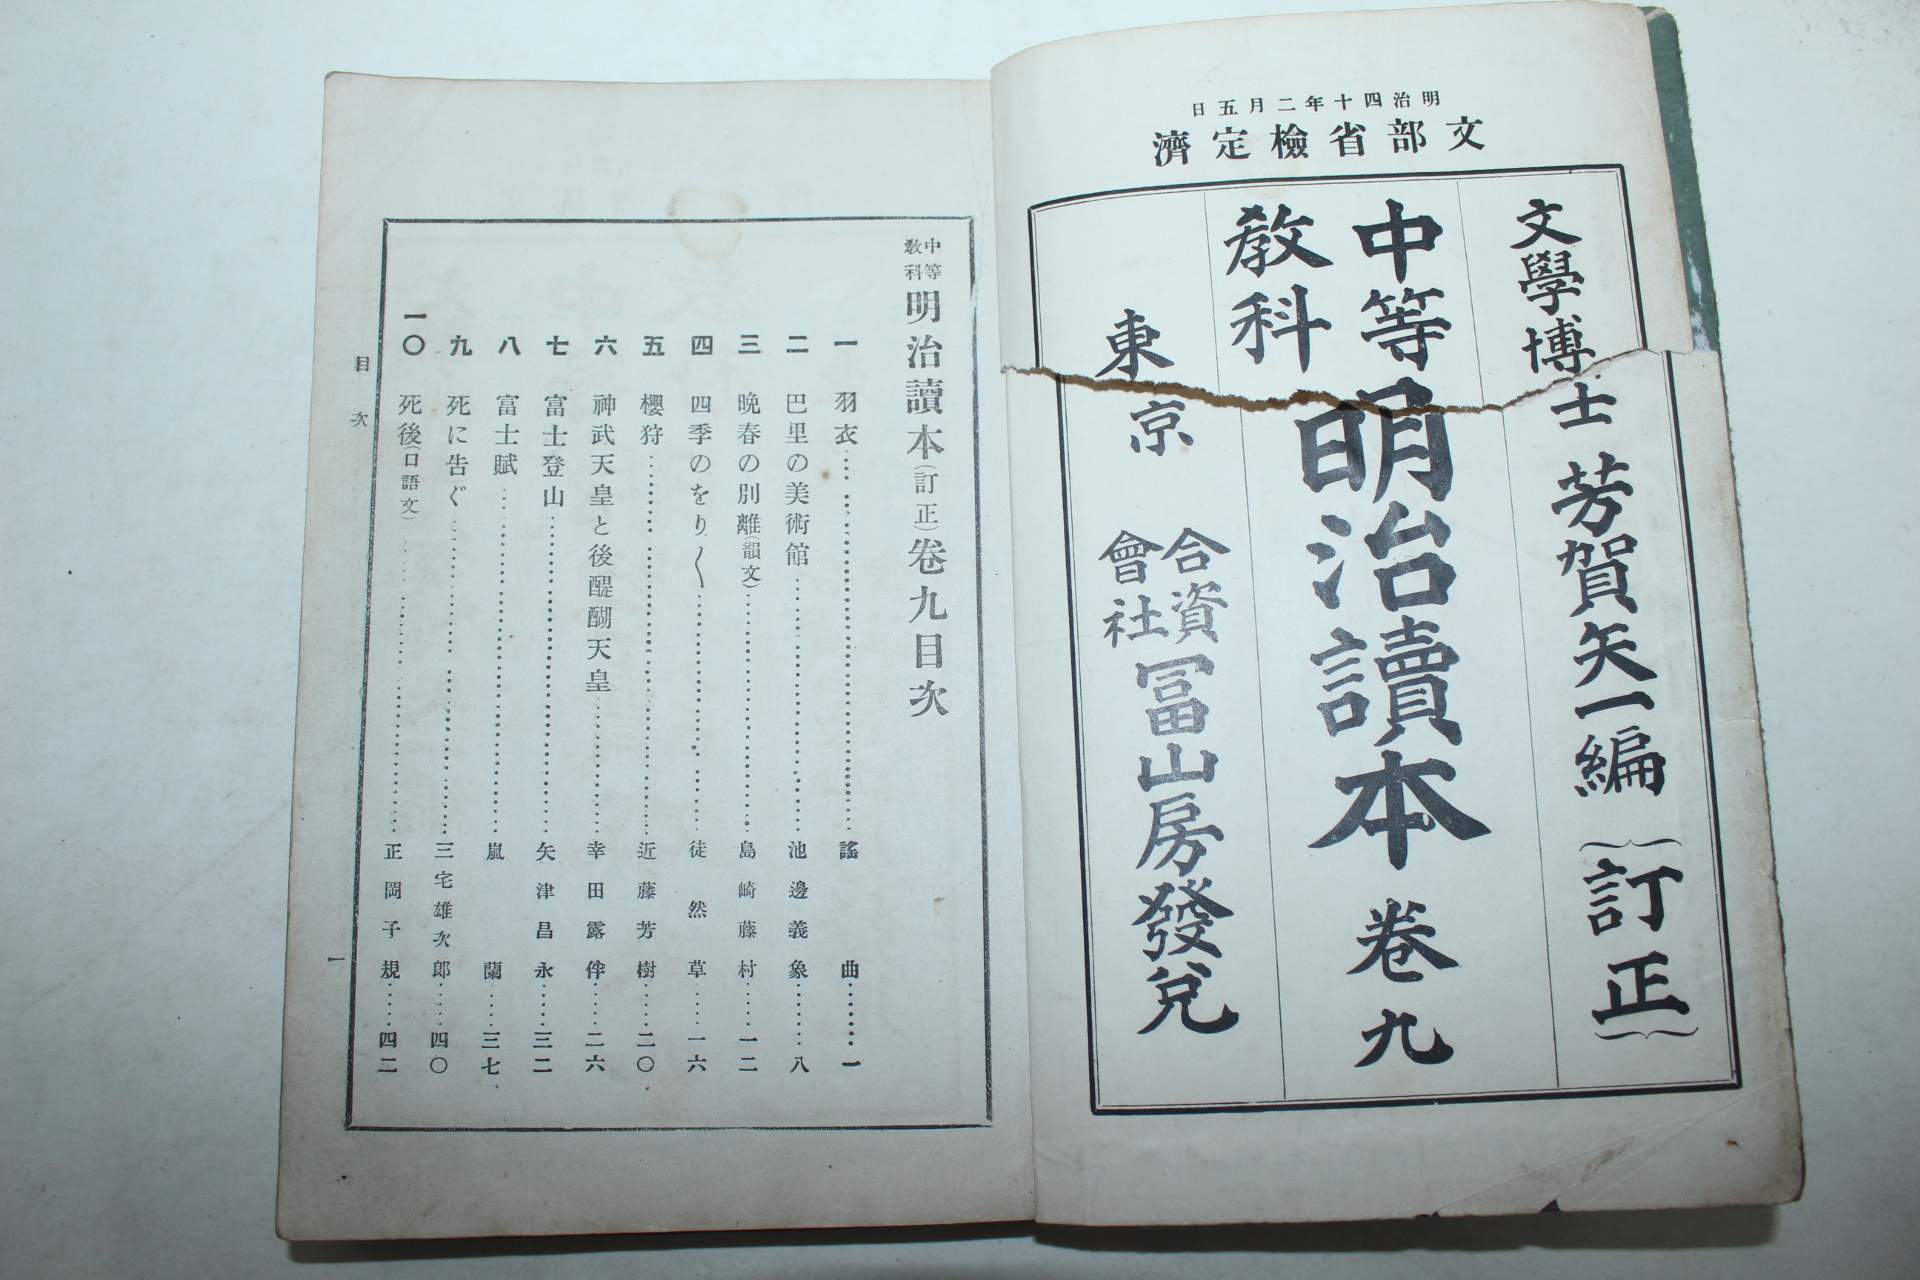 明治四十年二月五日
文部省檢定濟
文學博士 芳賀矢一編 (訂正)
中等敎科 明治讀本 卷九
東京 合資會社 冨山房發兌
中等敎科 明治讀本(訂正)卷九目次
一 羽衣…………謠曲……一
二 巴里の美術館…………池邊義象……八
三 晩春の別離(韻文)…………島崎藤村……一二
四 四季のをり〱…………徒然草……一六
五 櫻狩…………近藤芳樹……二〇
六 神武天皇と後醍醐天皇…………幸田露伴……二六
七 富士登山…………矢津昌永……三二
八 富士賦…………嵐蘭……三七
九 死に吿ぐ…………三宅雄次郎……四〇
一〇 死後(口語文)…………正岡子規……四二
目次
一